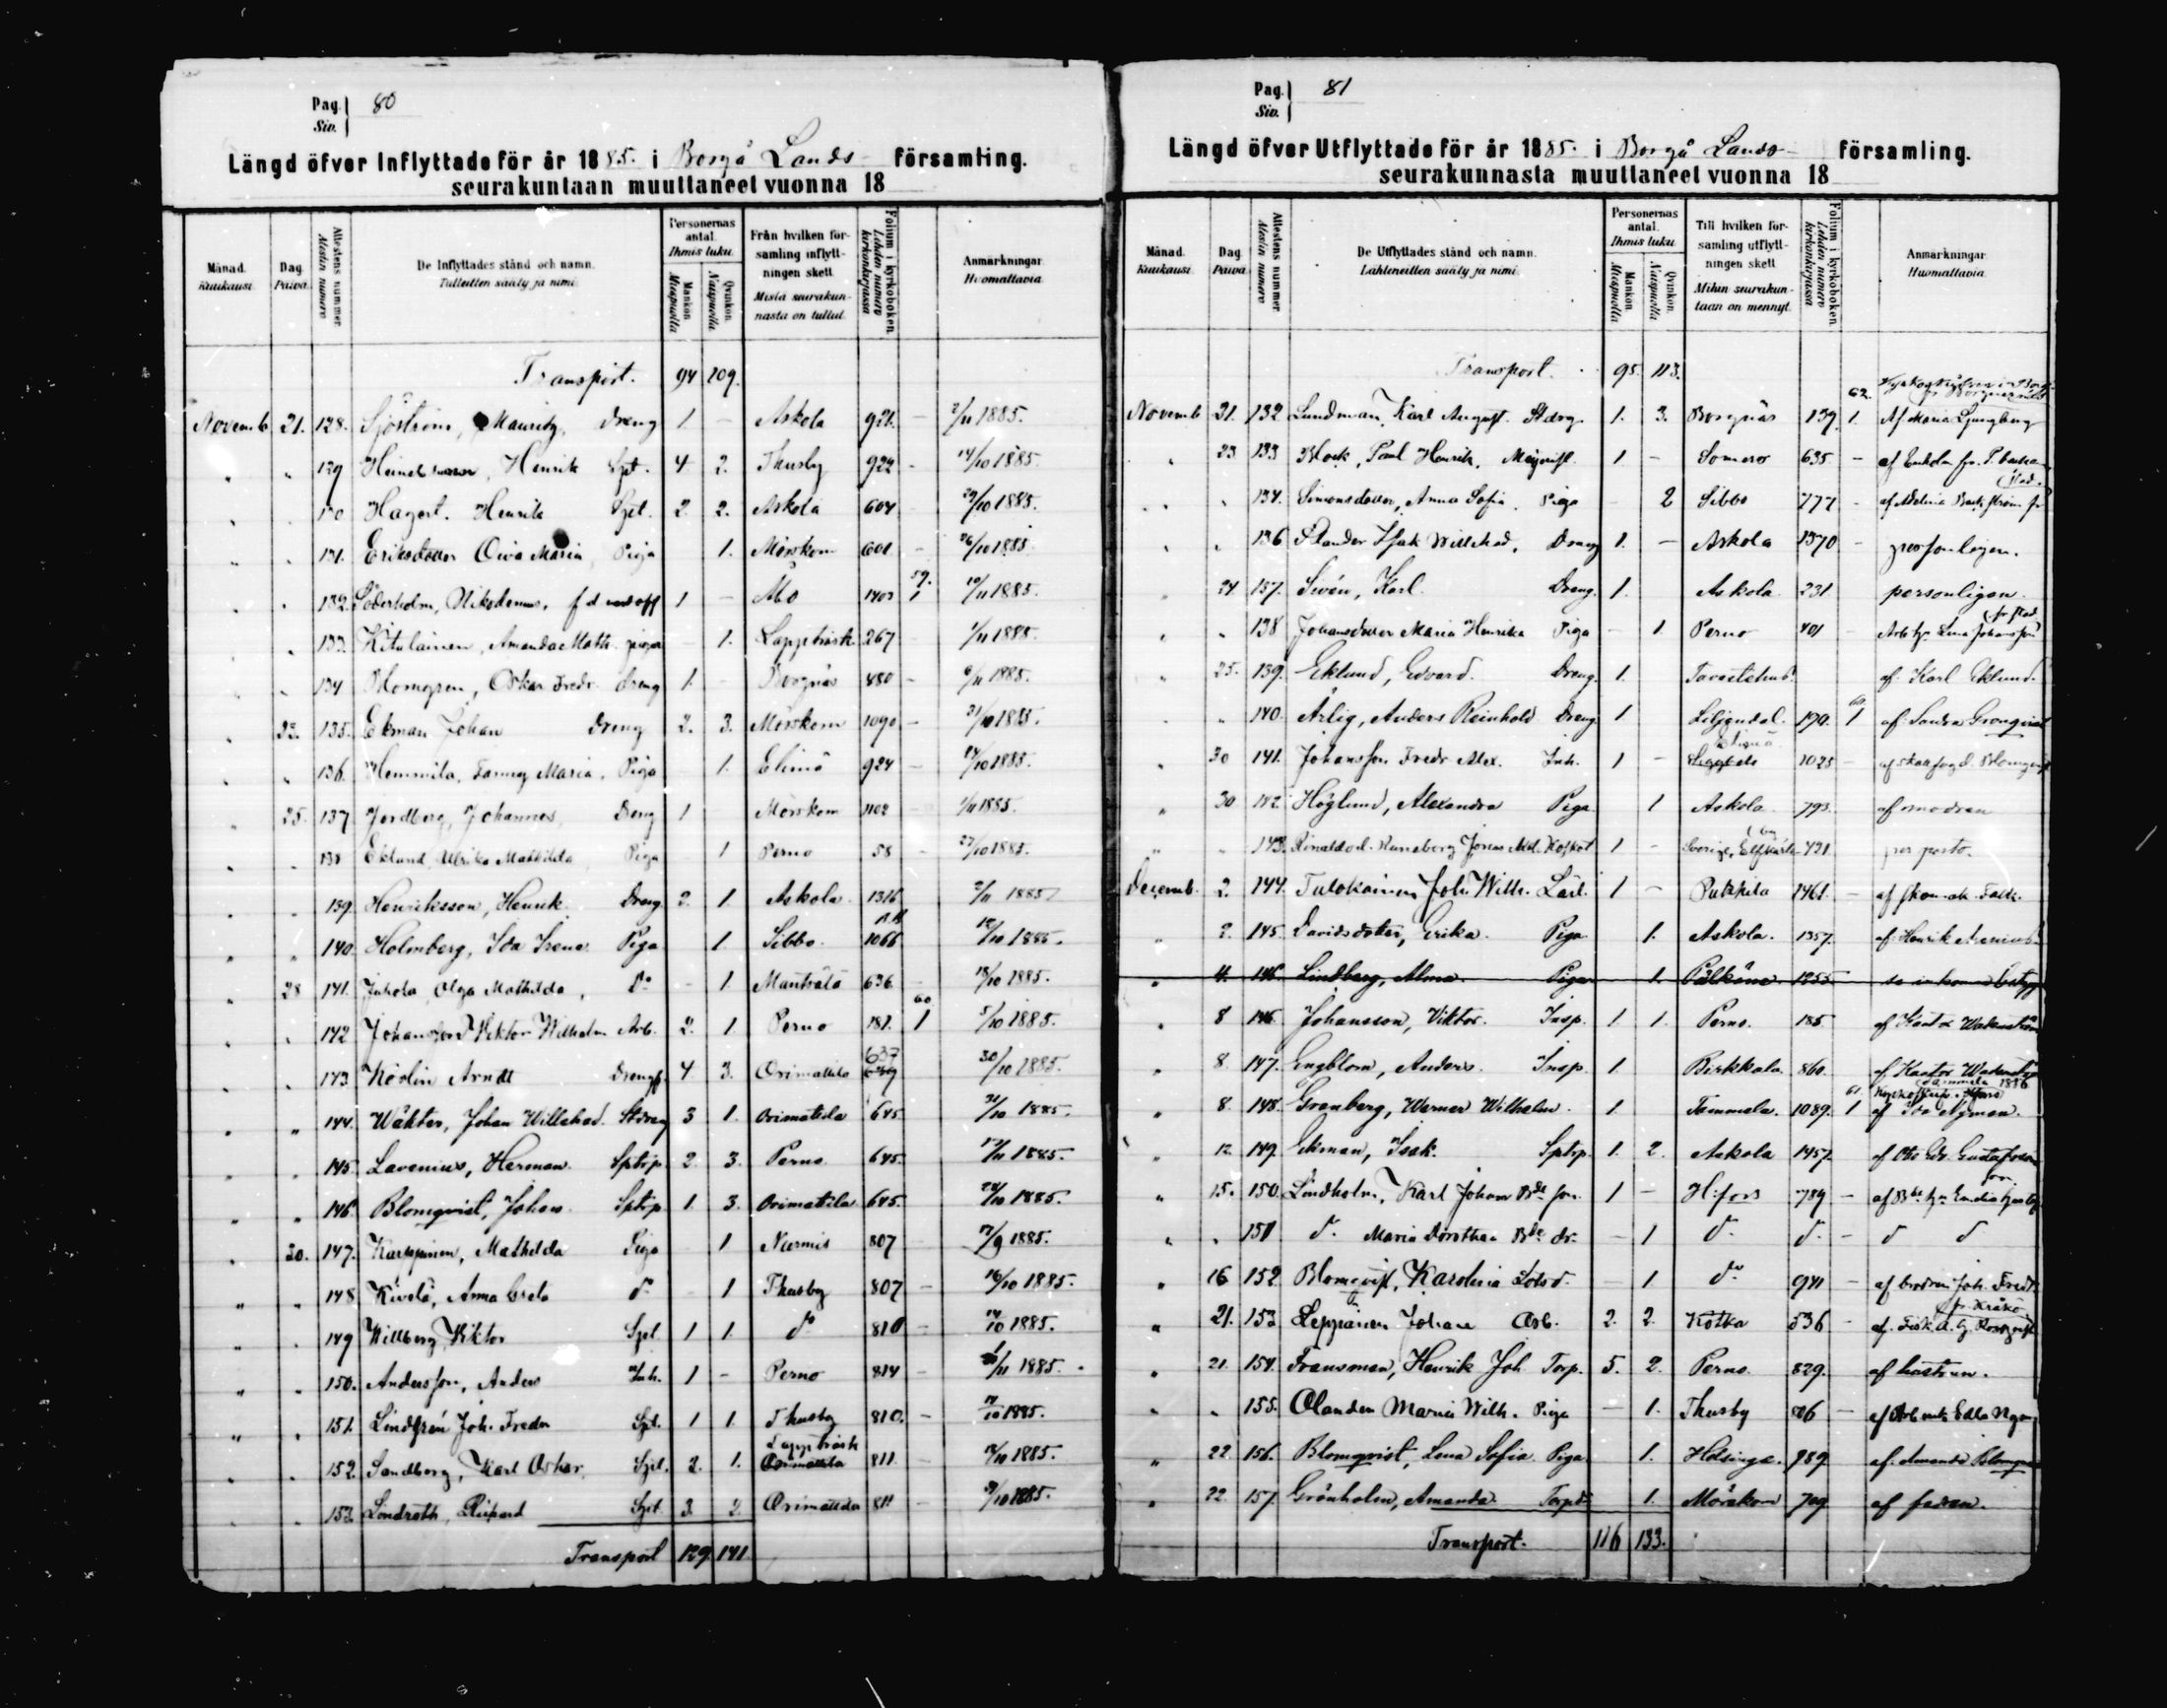 Pag. 80
Siv.
Längd öfver Inflyttade för år 1885. i Borgå Lands församling.
seurakuntaan muuttaneet vuonna 18
Månad. Kuukausi.
Dag. Päivä.
Attestens nummer Atestin numero
De Inflyttades stånd och namn. Tulleitten sääty ja nimi.
Personernas antal. Ihmis luku.
Mankön Miespuolia
Qvinkön. Naispuolia
Från hvilken församling inflyttningen skett Mistä seurakunnasta on tullut.
Folium i kyrkoboken. Lehden numero kirkonkirjassa
Anmärkningar Huomattavia
Transport. 94 109.
Novemb. 21. 128. Sjöström, Mauritz, Dreng 1 - Askola 921. - 2/11 1885.
" " 129 Henrik Spt. 4 2. Thusby 922 - 14/10 1885.
" " 130 Hagert. Henrik Spt. 2 2. Askola 604 - 29/10 1885.
" " 131. Eriksdotter Maria, Piga 1. Mörskom 601 - 26/10 1885.
" " 132. Söderholm, Nikodemus, f d 1 - Åbo 1403 59. 1 10/11 1885.
" 133. Amanda Math. piga - 1. Lappträsk 267 - 1/11 1885.
" " 134 Blomgren, Oskar Fredr. Dreng 1. - Borgnäs 480 - 6/11 1885.
" 23. 135. Ekman Johan Dreng 2. 3. Mörskom 1090 - 31/10 1885.
" " 136. Hemmilä, Fanny Maria, Piga 1. Elimä 924 - 24/10 1885.
" 25. 137 Nordberg, Johannes, Dreng 1 Mörskom 1102 - 1/11 1885.
" " 138 Eklund, Ulrika Mathilda Piga 1 Perno 58 - 27/10 1885.
" " 139. Henriksson, Henrik Dreng. 2. 1. Askola 1316 2/11 1885
" " 140. Holmberg, Ida Irene Piga 1 Sibbo. 1066 12/10 1885.
" 28 141. Olga Mathilda, Do - 1. Mäntsälä 636 - 18/10 1885.
" " 142 Johansson Viktor Wilhelm Arb. 2. 1. Perno 181. 60 1 5/10 1885.
" " 143. Norlin Arndt 4. 3. Orimattila 637 30/10 1885.
" " 144. Wäkter, Johan Willehad. Stdreng 3 1. Orimattila 645. 31/10 1885.
" " 145. Lavenius, Herman Sptrp. 2. 3. Perno 645. 12/11 1885.
" " 146. Blomqvist, Johan Sptrp. 1. 3. Orimattila 645. 28/10 1885.
" 30. 147. Karppinen, Mathilda Piga 1 Nurmis 807 - 17/9 1885.
" " 148 Kivelä, Anna Greta do - 1 Thusby 807 - 16/10 1885.
" " 149 Willberg, Viktor Spt 1 1. do 810 - 14/10 1885.
" " 150. Andersson, Anders Inh. 1 - Perno 814 - /11 1885.
" " 151. Lindgrén Joh. Fredr Spt. 1 1. Thusby 810. - /10 1885.
" " 152. Sandberg, Karl Oskar, Spt. 2. 1. Lappträsk Orimattila 811 18/10 1885.
" " 153. Lindroth, Rikhard Spt. 3. 2. Orimattila 811 - 9/10 1885.
Transport 129. 141.
Pag. 81
Siv.
Längd öfver Utflyttade för år 1885. i Borgå Lands- församling.
seurakunnasta muuttaneet vuonna 18
Månad. Kuukausi.
Dag. Päivä.
Attestens nummer Atestin numero
De Utflyttades stånd och namn. Lähteneitten sääty ja nimi.
Personernas antal. Ihmis luku.
Mankön Miespuolia
Qvinkön. Naispuolia
Till hvilken församling utflyttningen skett Mihin seurakuntaan on mennyt.
Folium i kyrkoboken. Lehden numero kirkonkirjassa
Anmärkningar Huomattavia
Transport. 95. 113.
Novemb. 21. 132 Lundman, Karl August. Stdrng. 1. 3. Borgnäs 139. 62. 1. Af Maria Ljungberg
" 23. 133 Block, Paul Henrik, 1 - Somero 635 -
" " 134. Simonsdotter, Anna Sofia. Piga 2 Sibbo 777 -
" " 136 Isak Willehad, Dreng 1. - Askola 1370 - personligen.
" 24. 137. Sivén, Karl. Dreng. 1. Askola. 231 personligen.
" " 138 Johansdotter Maria Henrika Piga - 1. Perno 401 - Lina Johansson
" 25. 139. Eklund, Edvard. Dreng. 1. Tavastehus. af Karl Eklund.
" " 140. Ärlig, Anders Reinhold Dreng 1 Liljendal. 190. 60. 1 af Sandra Grönqvist
" 30 141. Johansson Fredr Alex. Inh. 1 - Elimä 1025 - af skogsfogd. Blomqvist
" 30 142. Höglund, Alexandra Piga 1 Askola. 793. af modren
" " 143. Runeberg Jonas 1 - Sverige, 421 per posto.
Decemb. 2. 144. Tulokainen Joh. Wilh. Lärl. 1 - Pukkila 1461. -
" 2. 145. Davidsdotter, Erika. Piga 1. Askola. 1357. af Henrik Arenius
" 4. 146. Lindberg, Alma. Piga 1. Pälkäne 1255
" 8 146. Johansson, Viktor. Insp. 1. 1. Perno. 185 af Kantor
" 8. 147. Engblom, Anders. Insp. 1. Birkkala 860. af Kantor
" 8. 148. Granberg, Werner Wilhelm. 1. Tammela. 1089. 61. 1 af Ida Nyman.
" 12. 149 Ekman, Isak. Sptrp. 1. 2. Askola 1457 Gustafsson
" 15. 150. Lindholm, Karl Johan Bde son. 1 - H:fors 789 -
" " 151 do. Maria Dorothea Bde dr. - 1 do. do. - d d
" 16. 152. Blomqvist, Karolina Lotsd. - 1. do 941 - af brodren Joh. Fredr.
" 21. 153 Leppänen Johan Arb. 2. 2. Kotka 536 -
" 21. 154. Fransman, Henrik Joh. Torp. 5. 2. Perno. 829. af hustrun.
" " 155. Olander Maria Wilh. Piga - 1. Thusby 806 -
" 22. 156. Blomqvist, Lena Sofia Piga 1. Helsinge. 989. af Amanda Blomqvist
" 22. 157. Grönholm, Amanda. Torpd. 1. Mörskom 709 af fadren.
Transport. 116 133.